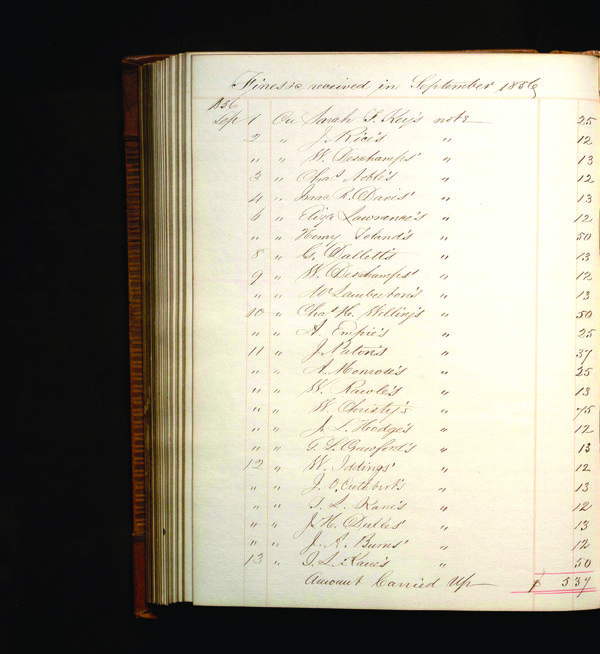 Fines &c received in September 1856
1856
Sep 1 On Sarah F. Key's note 25
2 " J. Rice's " 12
" " W. Deschamps' " 13
3 " Chas Noble's " 12
4 " Isaac R. Davis' " 13
6 " Eliza Lawrance's " 12
" " Henry Toland's " 50
8 " G. Dallett's " 13
9 " W. Deschamps' " 12
" " Wm Lamberton's " 13
10 " Chas H. Welling's " 50
" " A. Empie's " 25
11 " J. Paton's " 37
" " A. Monroe's " 25
" " W. Rawle's " 13
" " W. Christy's " 75
" " J. L. Hodge's " 12
" " G. L. Crawford's " 13
12 " W. Iddings' " 12
" " J. O. Cuthbert's " 13
" " T. L. Kane's " 12
" " J. H. Dulles' " 13
" " J. R. Burns' " 12
13 " T. L. Kane's " 50
Amount Carried Up $ 537